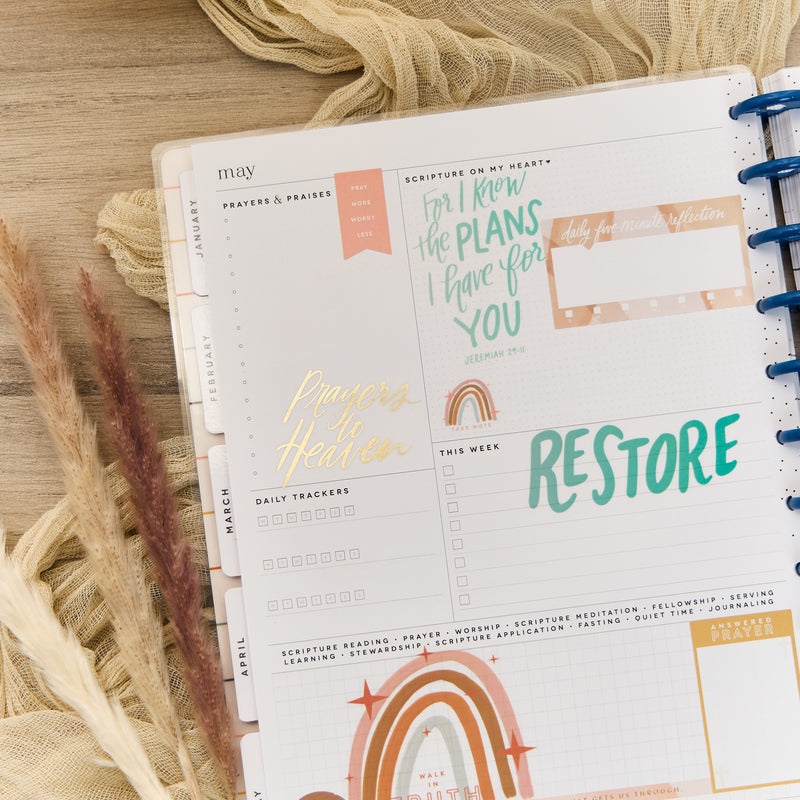 may
PRAYERS & PRAISES
PRAY
MORE
WORRY
LESS
SCRIPTURE ON MY HEART♥
For I KNOW
the PLANS
I have for
YOU
JEREMIAH 29:11
daily five-minute reflection
Prayers
to
Heaven
TAKE NOTE
THIS WEEK
RESTORE
DAILY TRACKERS
M T W T F S S
M T W T F S S
M T W T F S S
SCRIPTURE READING • PRAYER • WORSHIP • SCRIPTURE MEDITATION • FELLOWSHIP • SERVING
LEARNING • STEWARDSHIP • SCRIPTURE APPLICATION • FASTING • QUIET TIME • JOURNALING
ANSWERED
PRAYER
WALK
IN
TRUTH
GETS US THROUGH.
JANUARY
FEBRUARY
MARCH
APRIL